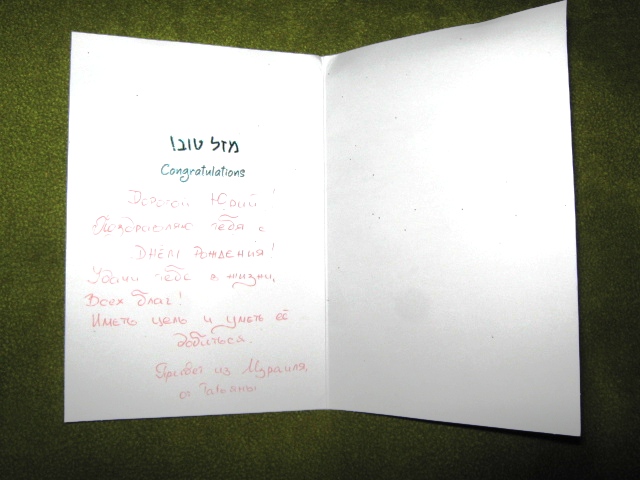 מזל טוב!
Congratulations
Дорогой Юрий!
Поздравляю тебя с
Днём Рождения!
Удачи тебе в жизни,
Всех благ!
Иметь цель и уметь её
добиться.
Привет из Израиля,
от Татьяны